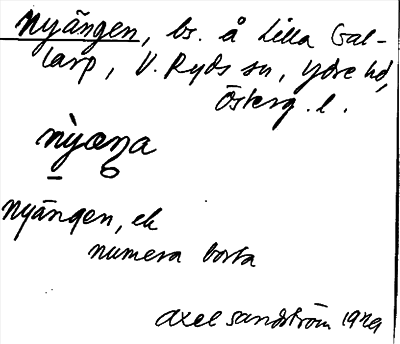 Nyängen, bs. å Lilla Gal-
larp, V. Ryds sn, Ydre hd,
Österg. l.
nỳæŋa
Nyängen, ek
numera borta
Axel Sandström 1929